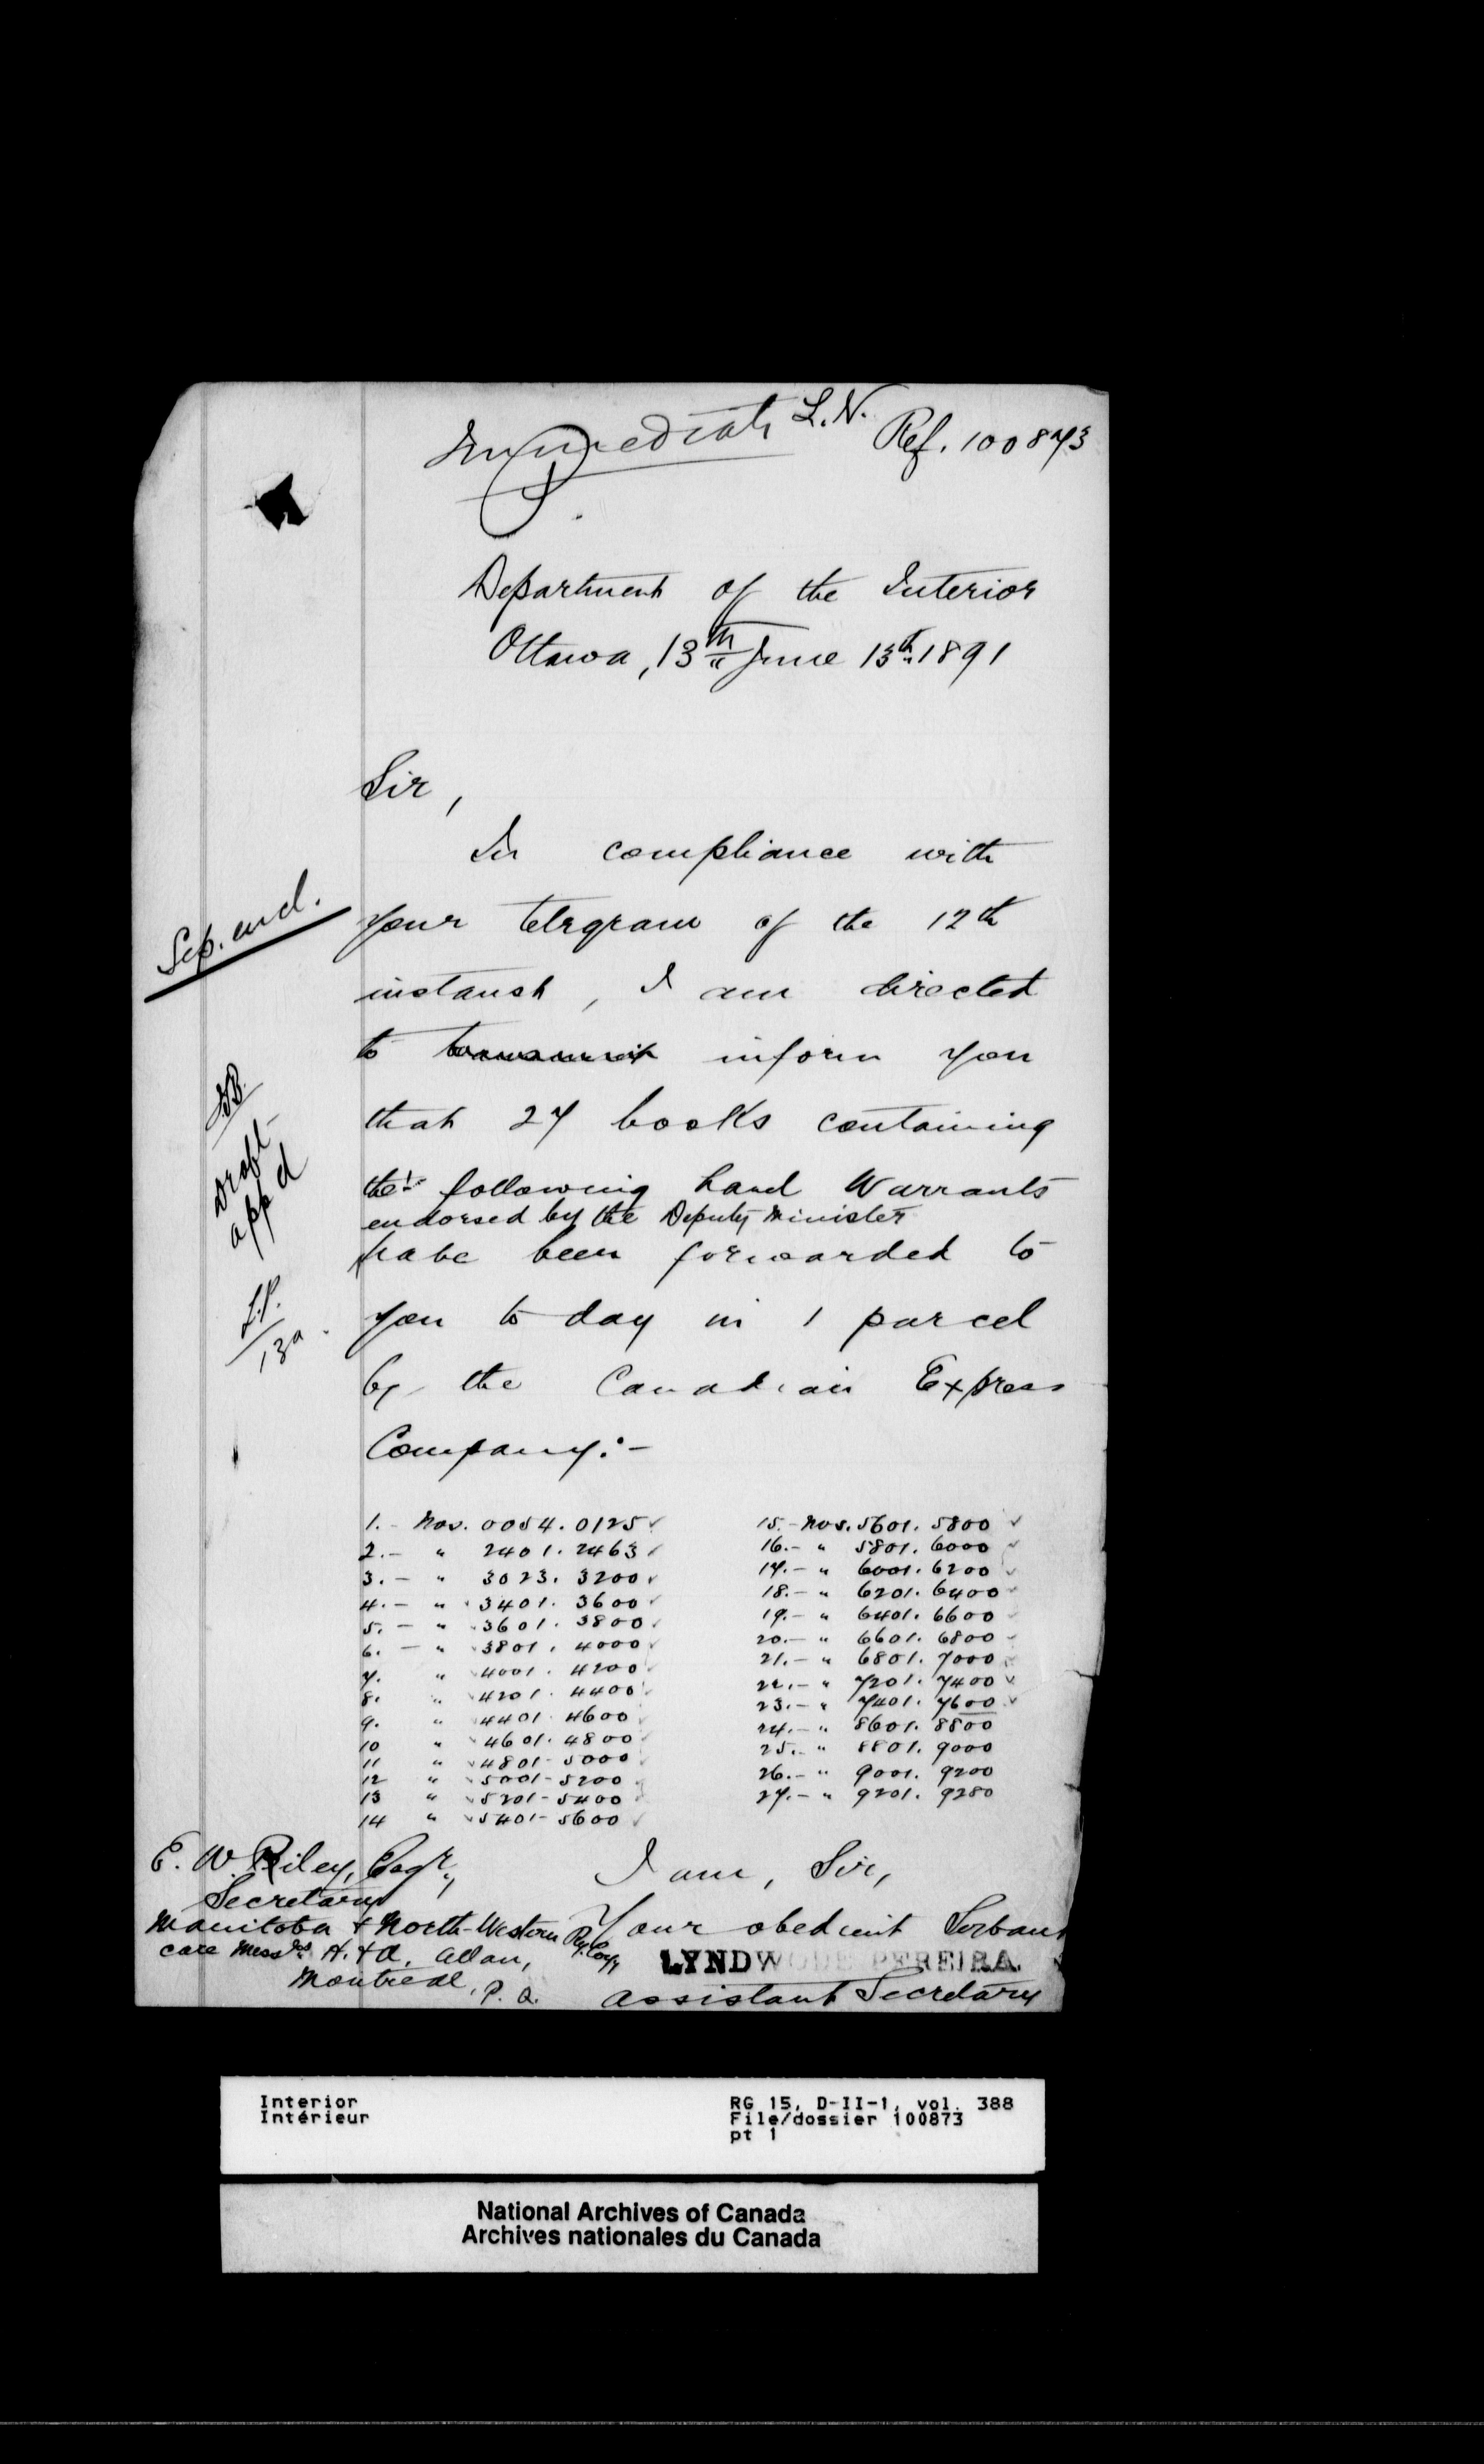 Immediate L.N. Ref. 100873
Department of the Interior
Ottawa, 13th June 13th 1891
Sir,
In compliance with
your telegram of the 12th
instant, I am directed
to transmit inform you
that 27 books containing
the following Land Warrants
endorsed by the Deputy Minister
have been forwarded to
you to day in 1 parcel
by the Canadian Express
Company:-
Sep. encl.
Draft
app'd
L.P.
1. - Nos. 0054. 0125 ✓
2. - " 2401. 2463 ✓
3. - " 3023. 3200 ✓
4. - " 3401. 3600 ✓
5. - " 3601. 3800 ✓
6. - " 3801. 4000 ✓
7. " 4001. 4200 ✓
8. " 4201. 4400 ✓
9. " 4401. 4600 ✓
10 " 4601. 4800 ✓
11 " 4801 - 5000 ✓
12 " 5001 - 5200 ✓
13 " 5201 - 5400 ✓
14 " 5401 - 5600 ✓
15. - Nos. 5601. 5800 ✓
16. - " 5801. 6000 ✓
17. - " 6001. 6200 ✓
18. - " 6201. 6400 ✓
19. - " 6401. 6600 ✓
20. - " 6601. 6800 ✓
21. - " 6801. 7000 ✓
22. - " 7201. 7400 ✓
23. - " 7401. 7600 ✓
24. - " 8601. 8800
25. - " 8801. 9000
26. - " 9001. 9200
27. - " 9201. 9280
I am, Sir,
Your obedient Servant
LYNDWODE PEREIRA
Assistant Secretary
E. W. Riley, Esqr.,
Secretary
Manitoba & North-Western Ry. Coy,
care Messrs H. & A. Allan,
Montreal, P. Q.
Interior
Intérieur
RG 15, D-II-1, vol. 388
File/dossier 100873
pt 1
National Archives of Canada
Archives nationales du Canada